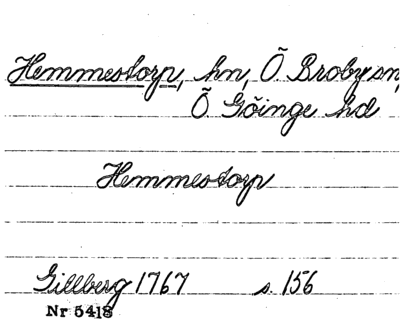 Hemmestorp, hn, Ö. Broby sn,
Ö. Göinge hd
Hemmestorp
Gillberg 1767 s. 156
Nr 5418